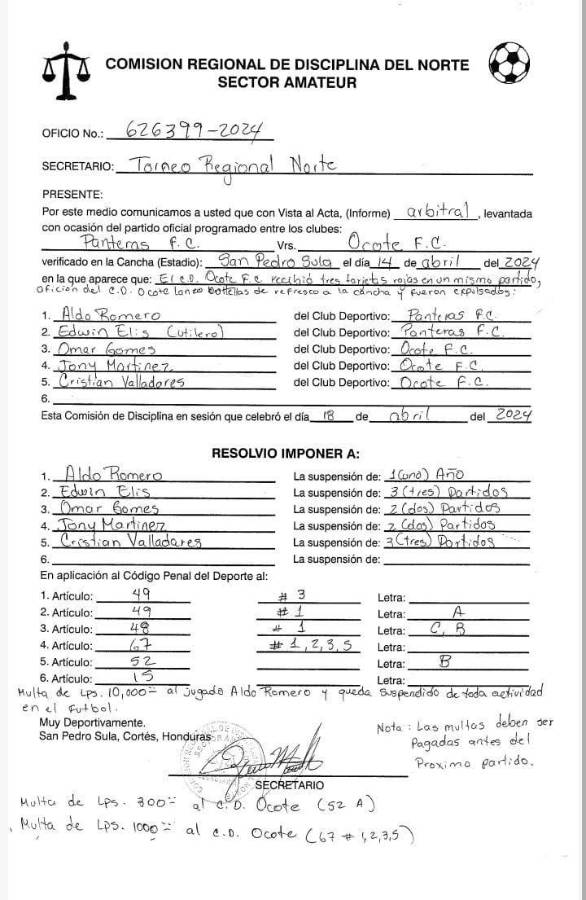 COMISION REGIONAL DE DISCIPLINA DEL NORTE
SECTOR AMATEUR
OFICIO No.: 626399-2024
SECRETARIO: Torneo Regional Norte
PRESENTE:
Por este medio comunicamos a usted que con Vista al Acta, (Informe) arbitral, levantada
con ocasión del partido oficial programado entre los clubes:
Panteras F.C. Vrs. Ocote F.C.
verificado en la Cancha (Estadio): San Pedro Sula el día 14 de abril del 2024
en la que aparece que: El C.D. Ocote F.C recibió tres tarjets rojas en un mismo partido,
Oficion del C.D. Ocote lanso botellas de refresco a la cancha y fueron expulsados:
1. Aldo Romero del Club Deportivo: Panteras FC
2. Edwin Elis (utilero) del Club Deportivo: Panteras F.C.
3. Omar Gomes del Club Deportivo: Ocote F.C.
4. Jony Martinez del Club Deportivo: Ocote F.C.
5. Cristian Valladares del Club Deportivo: Ocote F.C.
6.
Esta Comisión de Disciplina en sesión que celebró el día 18 de abril del 2024
RESOLVIO IMPONER A:
1. Aldo Romero La suspensión de: 1 (uno) Año
2. Edwin Elis La suspensión de: 3 (tres) Partidos
3. Omar Gomes La suspensión de: 2 (dos) Partidos
4. Jony Martinez La suspensión de: 2 (dos) Partidos
5. Cristian Valladares La suspensión de: 3 (tres) Partidos
6. La suspensión de:
En aplicación al Código Penal del Deporte al:
1. Artículo: 49 # 3 Letra:
2. Artículo: 49 # 1 Letra: A
3. Artículo: 48 # 1 Letra: C, B
4. Artículo: 67 # 1,2,3,5 Letra:
5. Artículo: 52 Letra: B
6. Artículo: 15 Letra:
Multa de Lps. 10,000= al jugado Aldo Romero y queda suspendido de toda actividad
en el Futbol.
Muy Deportivamente.
San Pedro Sula, Cortés, Honduras
Nota: Las multas deben ser
Pagadas antes del
Proximo partido.
SECRETARIO
Multa de Lps. 300= al C.D. Ocote (52 A)
Multa de Lps. 1000= al C.D. Ocote (67 # 1,2,3,5)